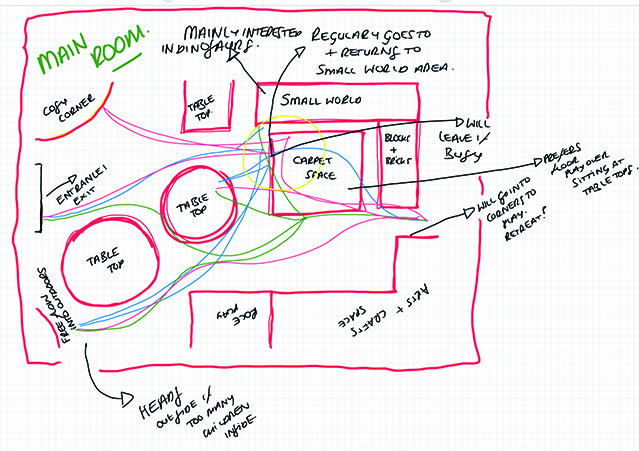 MAIN
ROOM.
MAINLY INTERESTED
IN DINOSAURS.
REGULARY GOES TO
+ RETURNS TO
SMALL WORLD AREA.
COSY
CORNER
TABLE
TOP.
SMALL WORLD
BLOCKS
+
BRICKS
CARPET
SPACE
WILL
LEAVE if
BUSY
PREFERS
FLOOR
PLAY OVER
SITTING AT
TABLE TOPS.
WILL GO INTO
CORNERS TO
PLAY.
RETREAT?
ENTRANCE/
EXIT
TABLE
TOP
TABLE
TOP
FREE FLOW
INTO OUTDOORS
ROLE
PLAY
ARTS + CRAFTS
SPACE
HEADS
OUTSIDE if
TOO MANY
CHILDREN
INSIDE